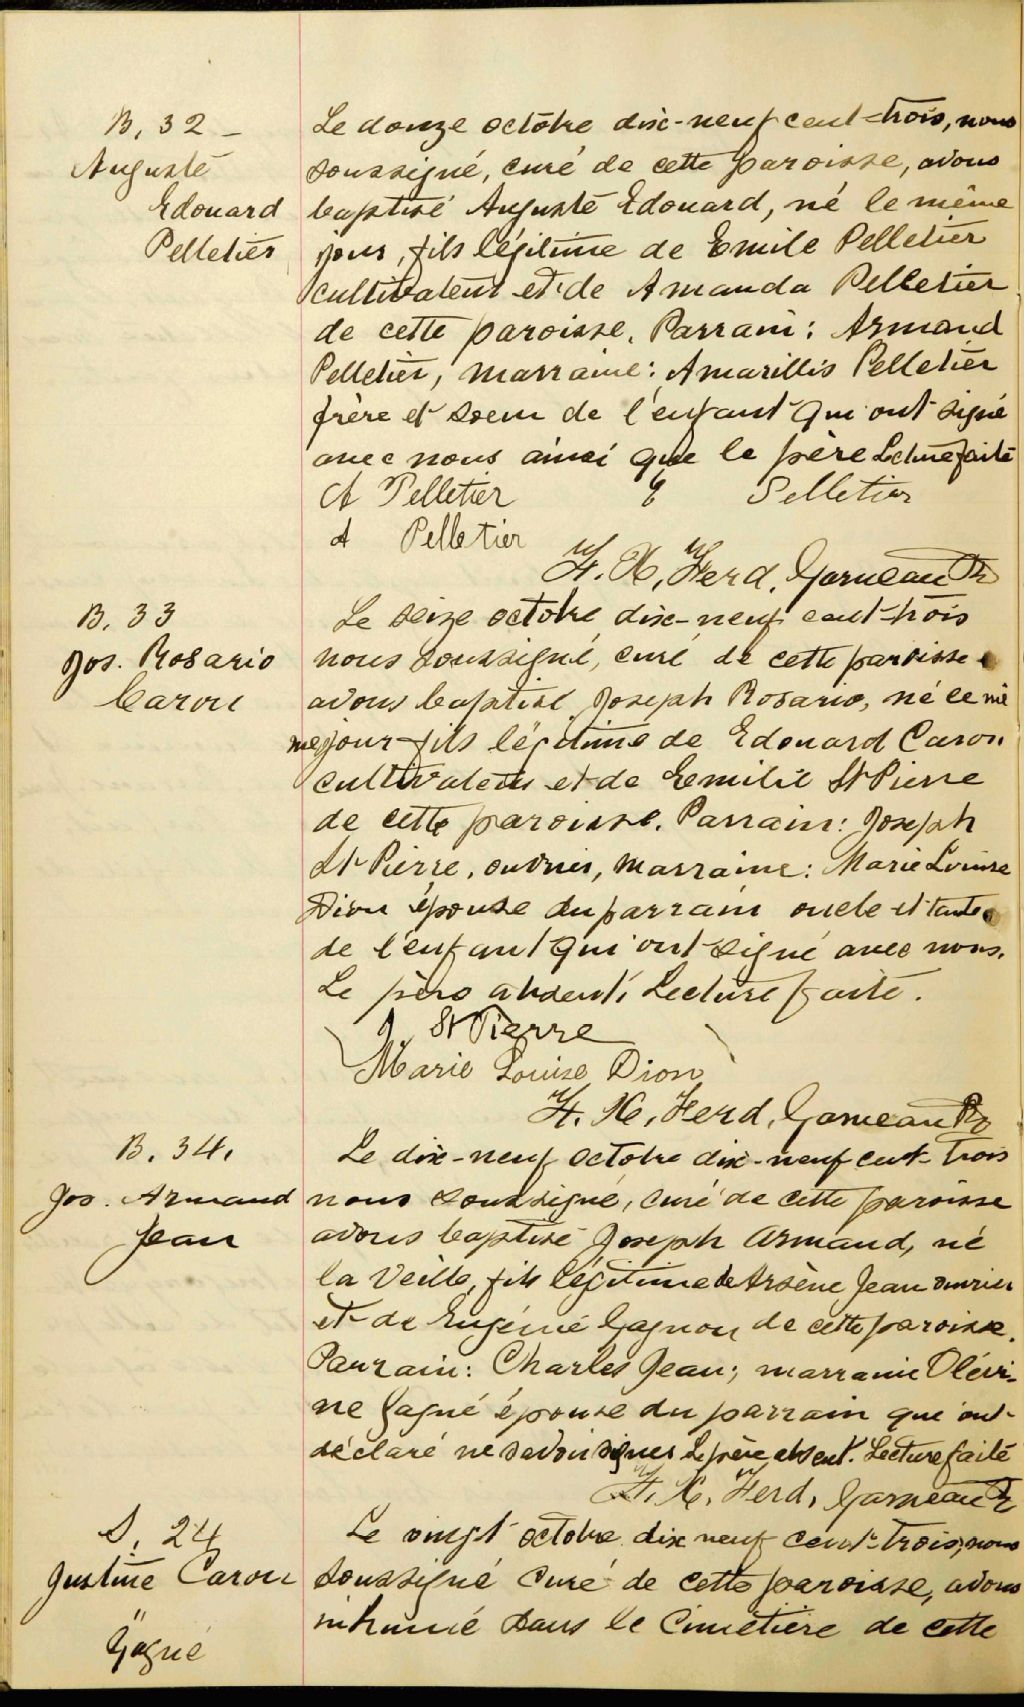 B. 32 -
Auguste
Edouard
Pelletier
Le douze octobre dix-neuf cent-trois, nous
soussigné, curé de cette paroisse, avons
baptisé Auguste Edouard, né le même
jour, fils légitime de Emile Pelletier
cultivateur et de Amanda Pelletier
de cette paroisse. Parrain: Armand
Pelletier, marraine: Amarillis Pelletier
frère et soeur de l'enfant qui ont signé
avec nous ainsi que le père Lecture faite
A Pelletier E Pelletier
A Pelletier
F. X. Ferd. Garneau Ptr
B. 33
Jos. Rosario
Caron
Le seize octobre dix-neuf cent-trois
nous soussigné, curé de cette paroisse
avons baptisé Joseph Rosario, né ce mê
me jour fils légitime de Edouard Caron
cultivateur et de Emilie St Pierre
de cette paroisse. Parrain: Joseph
St Pierre, ouvrier, marraine: Marie Louise
Dion épouse du parrain oncle et tante
de l'enfant qui ont signé avec nous.
Le père absent. Lecture faite.
J. St Pierre
Marie Louise Dion
F. X. Ferd. Garneau Ptr
B. 34.
Jos. Armand
Jean
Le dix-neuf octobre dix-neuf cent-trois
nous soussigné, curé de cette paroisse
avons baptisé Joseph Armand, né
la veille, fils légitime de Arsène Jean ouvrier
et de Eugénie Gagnon de cette paroisse.
Parrain: Charles Jean; marraine Olévi-
ne Gagné épouse du parrain qui ont
déclaré ne savoir signer Le père absent. Lecture faite
F. X. Ferd. Garneau Ptr
S. 24
Justine Caron
"
Gagné
Le vingt octobre dix neuf cent-trois, nous
soussigné curé de cette paroisse, avons
inhumé dans le Cimetière de cette